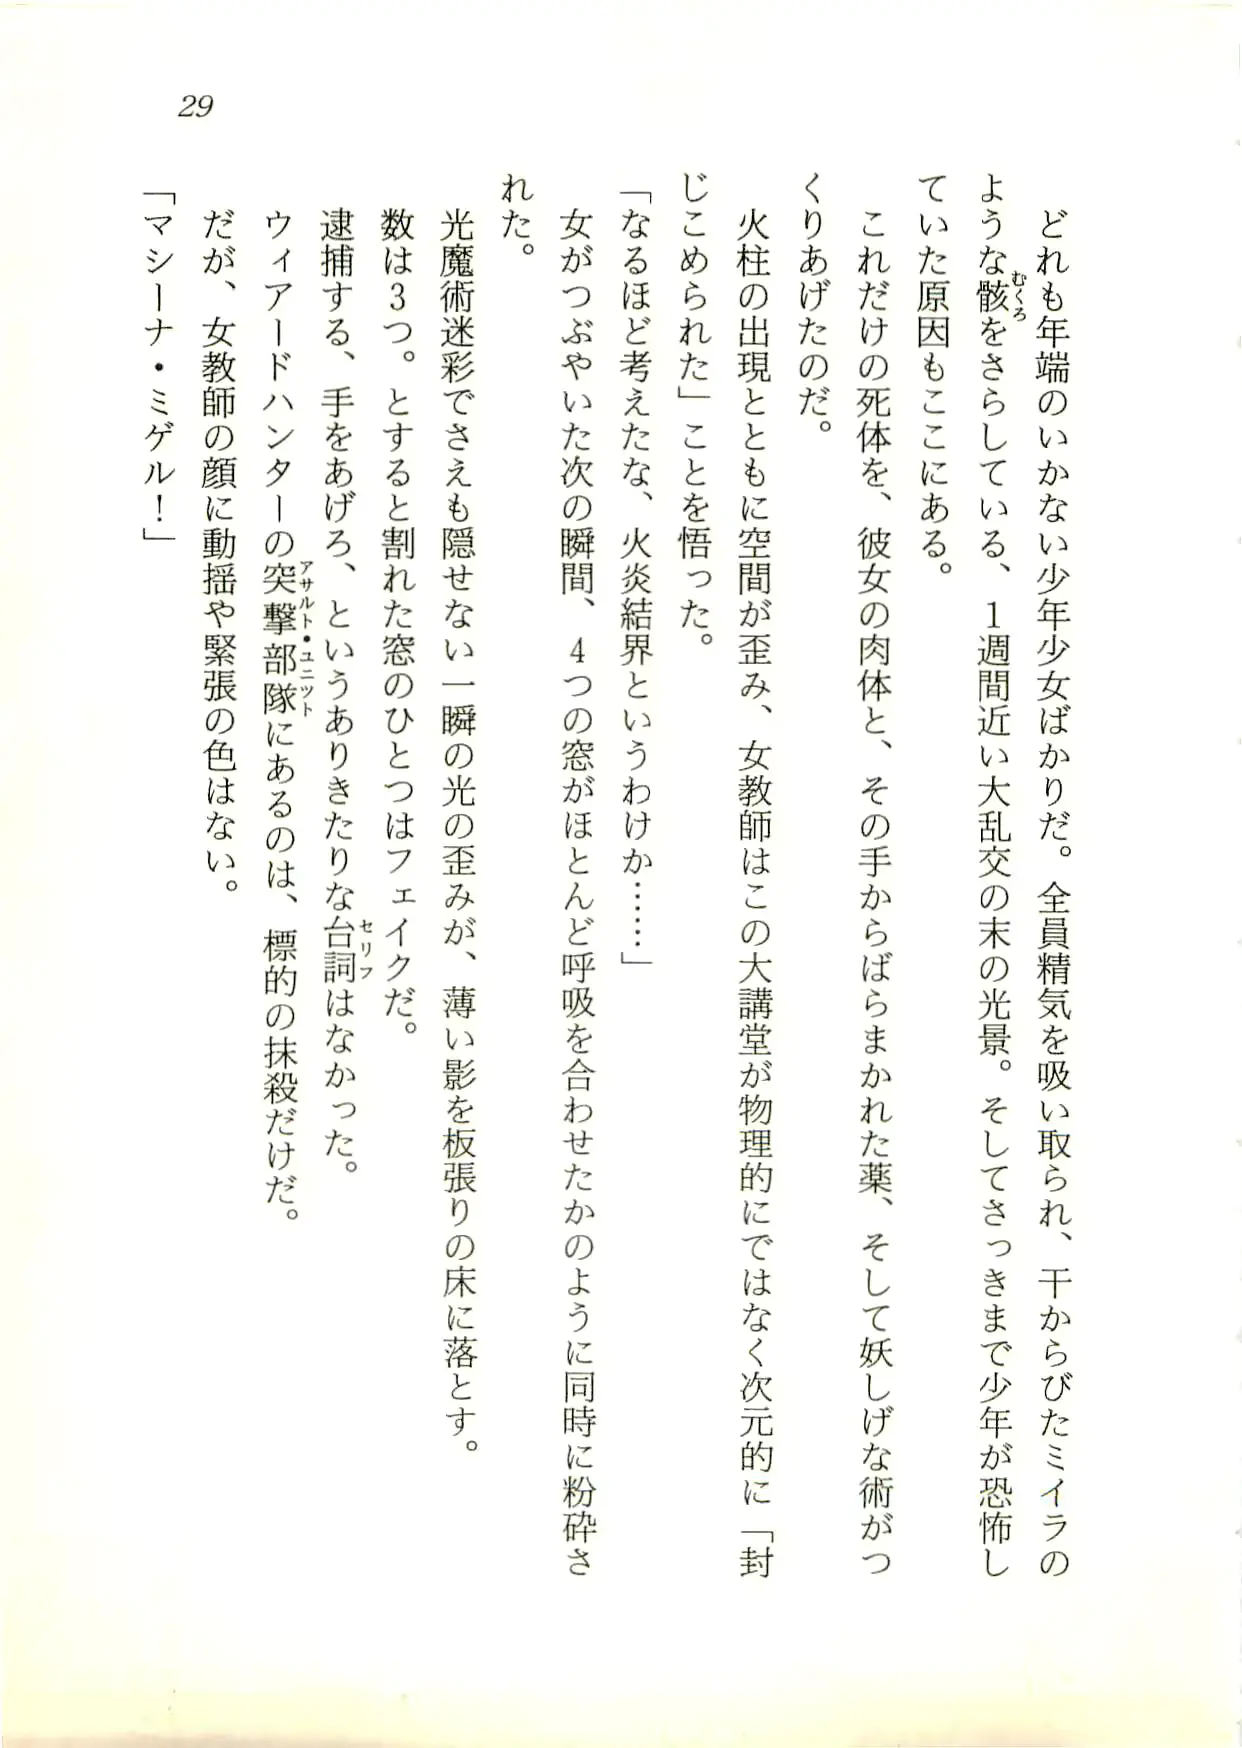 29
どれも年端のいかない少年少女ばかりだ。全員精気を吸い取られ、干からびたミイラの
ような骸をさらしている、1週間近い大乱交の末の光景。そしてさっきまで少年が恐怖し
むくろ
ていた原因もここにある。
これだけの死体を、彼女の肉体と、その手からばらまかれた薬、そして妖しげな術がつ
くりあげたのだ。
火柱の出現とともに空間が歪み、女教師はこの大講堂が物理的にではなく次元的に「封
じこめられた」ことを悟った。
「なるほど考えたな、火炎結界というわけか……」
女がつぶやいた次の瞬間、4つの窓がほとんど呼吸を合わせたかのように同時に粉砕さ
れた。
光魔術迷彩でさえも隠せない一瞬の光の歪みが、薄い影を板張りの床に落とす。
数は3つ。とすると割れた窓のひとつはフェイクだ。
逮捕する、手をあげろ、というありきたりな台詞はなかった。
セリフ
ウィアードハンターの突撃部隊にあるのは、標的の抹殺だけだ。
アサルト・ユニット
だが、女教師の顔に動揺や緊張の色はない。
「マシーナ・ミゲル！」